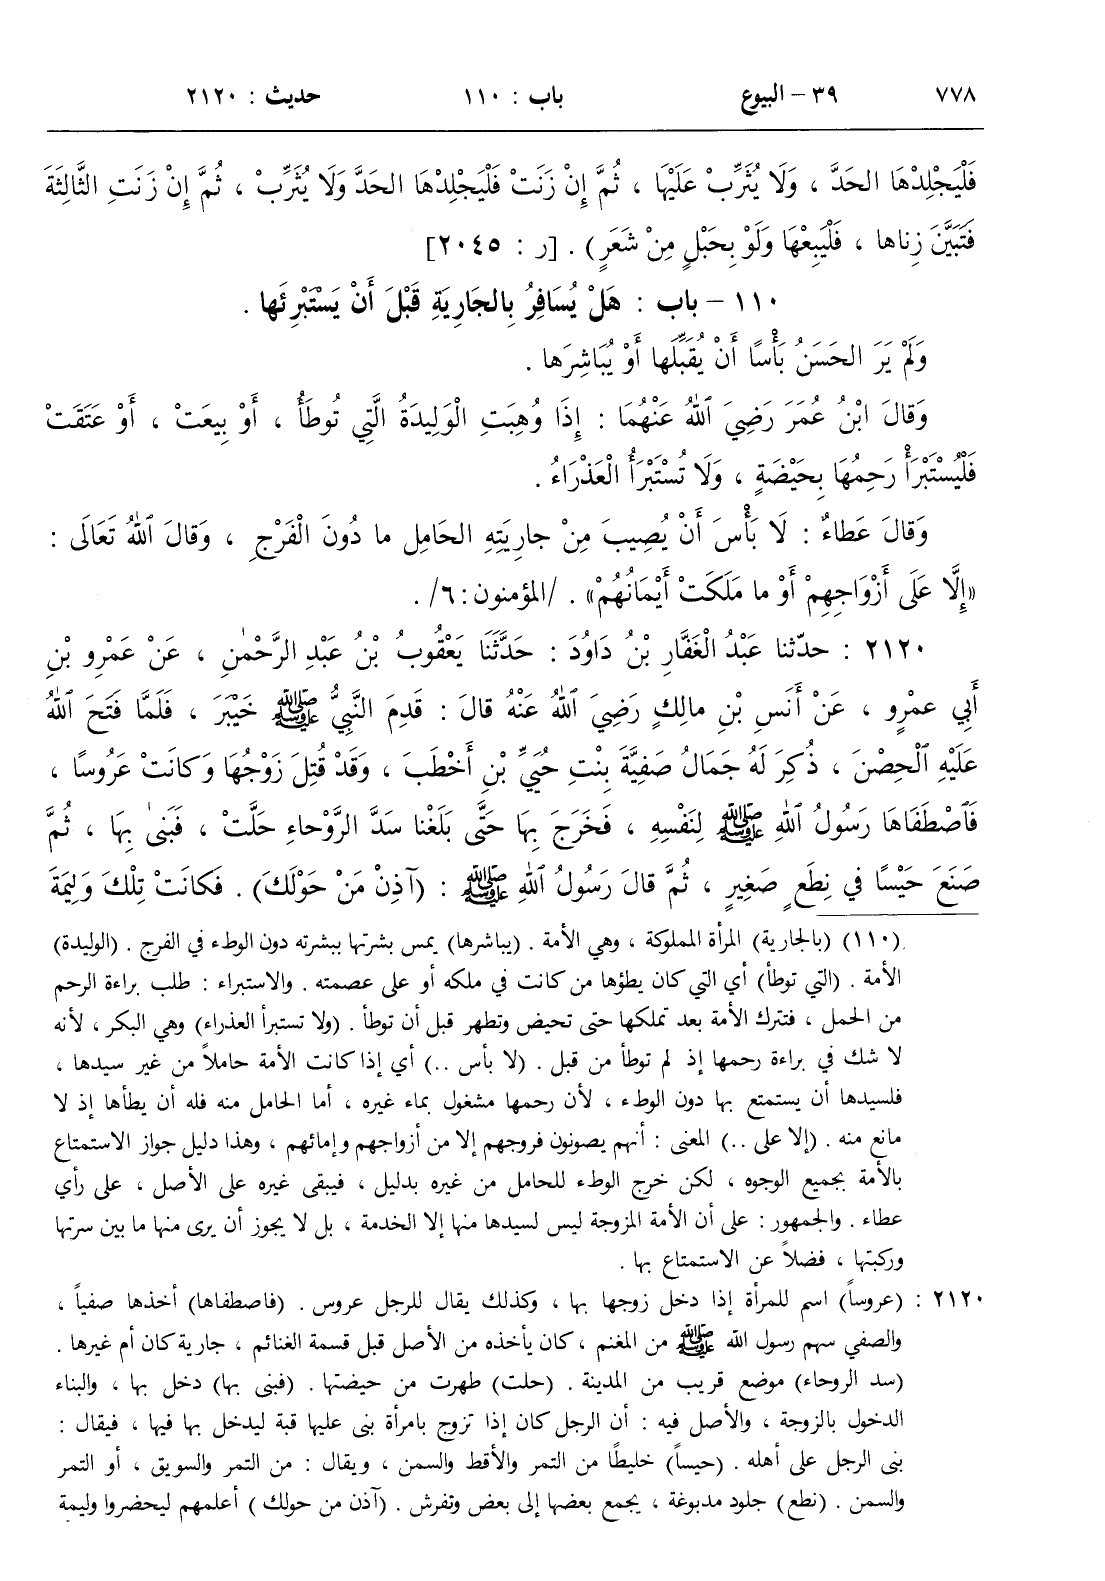 ٧٧٨ ٣٩ – البيوع باب : ١١٠ حديث : ٢١٢٠
فَلْيَجْلِدْهَا الحَدَّ ، وَلَا يُثَرِّبْ عَلَيْهَا ، ثُمَّ إِنْ زَنَتْ فَلْيَجْلِدْهَا الحَدَّ وَلَا يُثَرِّبْ ، ثُمَّ إِنْ زَنَتِ الثَّالِثَةَ
فَتَبَيَّنَ زِناها ، فَلْيَبِعْهَا وَلَوْ بِحَبْلٍ مِنْ شَعَرٍ) . [ر : ٢٠٤٥]
١١٠ – باب : هَلْ يُسَافِرُ بِالجَارِيَةِ قَبْلَ أَنْ يَسْتَبْرِئَها .
وَلَمْ يَرَ الحَسَنُ بَأْسًا أَنْ يُقَبِّلَها أَوْ يُبَاشِرَها .
وَقالَ ابْنُ عُمَرَ رَضِيَ ٱللّٰهُ عَنْهُمَا : إِذَا وُهِبَتِ الْوَلِيدَةُ الَّتِي تُوطَأُ ، أَوْ بِيعَتْ ، أَوْ عَتَقَتْ
فَلْيُسْتَبْرَأْ رَحِمُهَا بِحَيْضَةٍ ، وَلَا تُسْتَبْرَأُ الْعَذْرَاءُ .
وَقالَ عَطاءٌ : لَا بَأْسَ أَنْ يُصِيبَ مِنْ جارِيَتِهِ الحَامِلِ ما دُونَ الْفَرْجِ ، وَقالَ ٱللّٰهُ تَعَالَى :
«إِلَّا عَلَى أَزْوَاجِهِمْ أَوْ ما مَلَكَتْ أَيْمَانُهُمْ» . /المؤمنون : ٦/ .
٢١٢٠ : حدّثنا عَبْدُ الْغَفَّارِ بْنُ دَاوُدَ : حَدَّثَنَا يَعْقُوبُ بْنُ عَبْدِ الرَّحْمٰنِ ، عَنْ عَمْرِو بْنِ
أَبِي عمْرٍو ، عَنْ أَنَسِ بْنِ مالِكٍ رَضِيَ ٱللّٰهُ عَنْهُ قالَ : قَدِمَ النَّبِيُّ ﷺ خَيْبَرَ ، فَلَمَّا فَتَحَ ٱللّٰهُ
عَلَيْهِ ٱلْحِصْنَ ، ذُكِرَ لَهُ جَمَالُ صَفِيَّةَ بِنْتِ حُيَيِّ بْنِ أَخْطَبَ ، وَقَدْ قُتِلَ زَوْجُهَا وَكانَتْ عَرُوسًا ،
فَٱصْطَفَاهَا رَسُولُ ٱللّٰهِ ﷺ لِنَفْسِهِ ، فَخَرَجَ بِهَا حَتَّى بَلَغْنا سَدَّ الرَّوْحاءِ حَلَّتْ ، فَبَنىٰ بِهَا ، ثُمَّ
صَنَعَ حَيْسًا في نِطَعٍ صَغِيرٍ ، ثُمَّ قالَ رَسُولُ ٱللّٰهِ ﷺ : (آذِنْ مَنْ حَوْلَكَ) . فَكانَتْ تِلْكَ وَلِيمَةَ
(١١٠) (بالجارية) المرأة المملوكة ، وهي الأمة . (يباشرها) يمس بشرتها ببشرته دون الوطء في الفرج . (الوليدة)
الأمة . (التي توطأ) أي التي كان يطؤها من كانت في ملكه أو على عصمته . والاستبراء : طلب براءة الرحم
من الحمل ، فتترك الأمة بعد تملكها حتى تحيض وتطهر قبل أن توطأ . (ولا تستبرأ العذراء) وهي البكر ، لأنه
لا شك في براءة رحمها إذ لم توطأ من قبل . (لا بأس ..) أي إذا كانت الأمة حاملاً من غير سيدها ،
فلسيدها أن يستمتع بها دون الوطء ، لأن رحمها مشغول بماء غيره ، أما الحامل منه فله أن يطأها إذ لا
مانع منه . (إلا على ..) المعنى : أنهم يصونون فروجهم إلا من أزواجهم وإمائهم ، وهذا دليل جواز الاستمتاع
بالأمة بجميع الوجوه ، لكن خرج الوطء للحامل من غيره بدليل ، فيبقى غيره على الأصل ، على رأي
عطاء . والجمهور : على أن الأمة المزوجة ليس لسيدها منها إلا الخدمة ، بل لا يجوز أن يرى منها ما بين سرتها
وركبتها ، فضلاً عن الاستمتاع بها .
٢١٢٠ : (عروساً) اسم للمرأة إذا دخل زوجها بها ، وكذلك يقال للرجل عروس . (فاصطفاها) أخذها صفياً ،
والصفي سهم رسول الله ﷺ من المغنم ، كان يأخذه من الأصل قبل قسمة الغنائم ، جارية كان أم غيرها .
(سد الروحاء) موضع قريب من المدينة . (حلت) طهرت من حيضتها . (فبنى بها) دخل بها ، والبناء
الدخول بالزوجة ، والأصل فيه : أن الرجل كان إذا تزوج بامرأة بنى عليها قبة ليدخل بها فيها ، فيقال :
بنى الرجل على أهله . (حيساً) خليطًا من التمر والأقط والسمن ، ويقال : من التمر والسويق ، أو التمر
والسمن . (نطع) جلود مدبوغة ، يجمع بعضها إلى بعض وتفرش . (آذن من حولك) أعلمهم ليحضروا وليمة